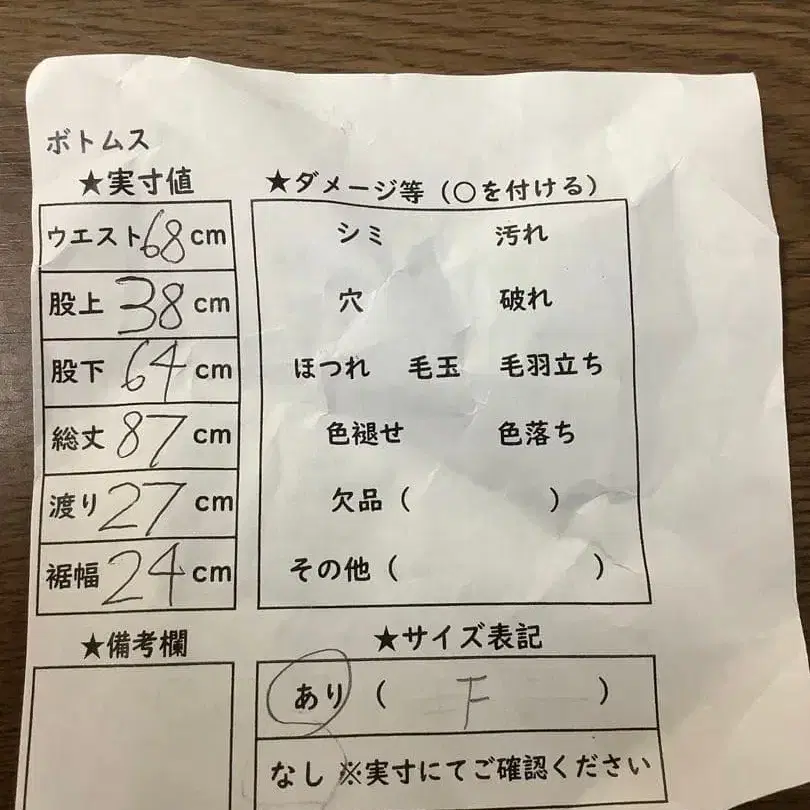 ボトムス
★実寸値
ウエスト68cm
股上 38 cm
股下 64 cm
総丈 87 cm
渡り 27 cm
裾幅 24 cm
★備考欄
★ダメージ等（○を付ける）
シミ 汚れ
穴 破れ
ほつれ 毛玉 毛羽立ち
色褪せ 色落ち
欠品（ ）
その他（ ）
★サイズ表記
あり（ F ）
なし ※実寸にてご確認ください